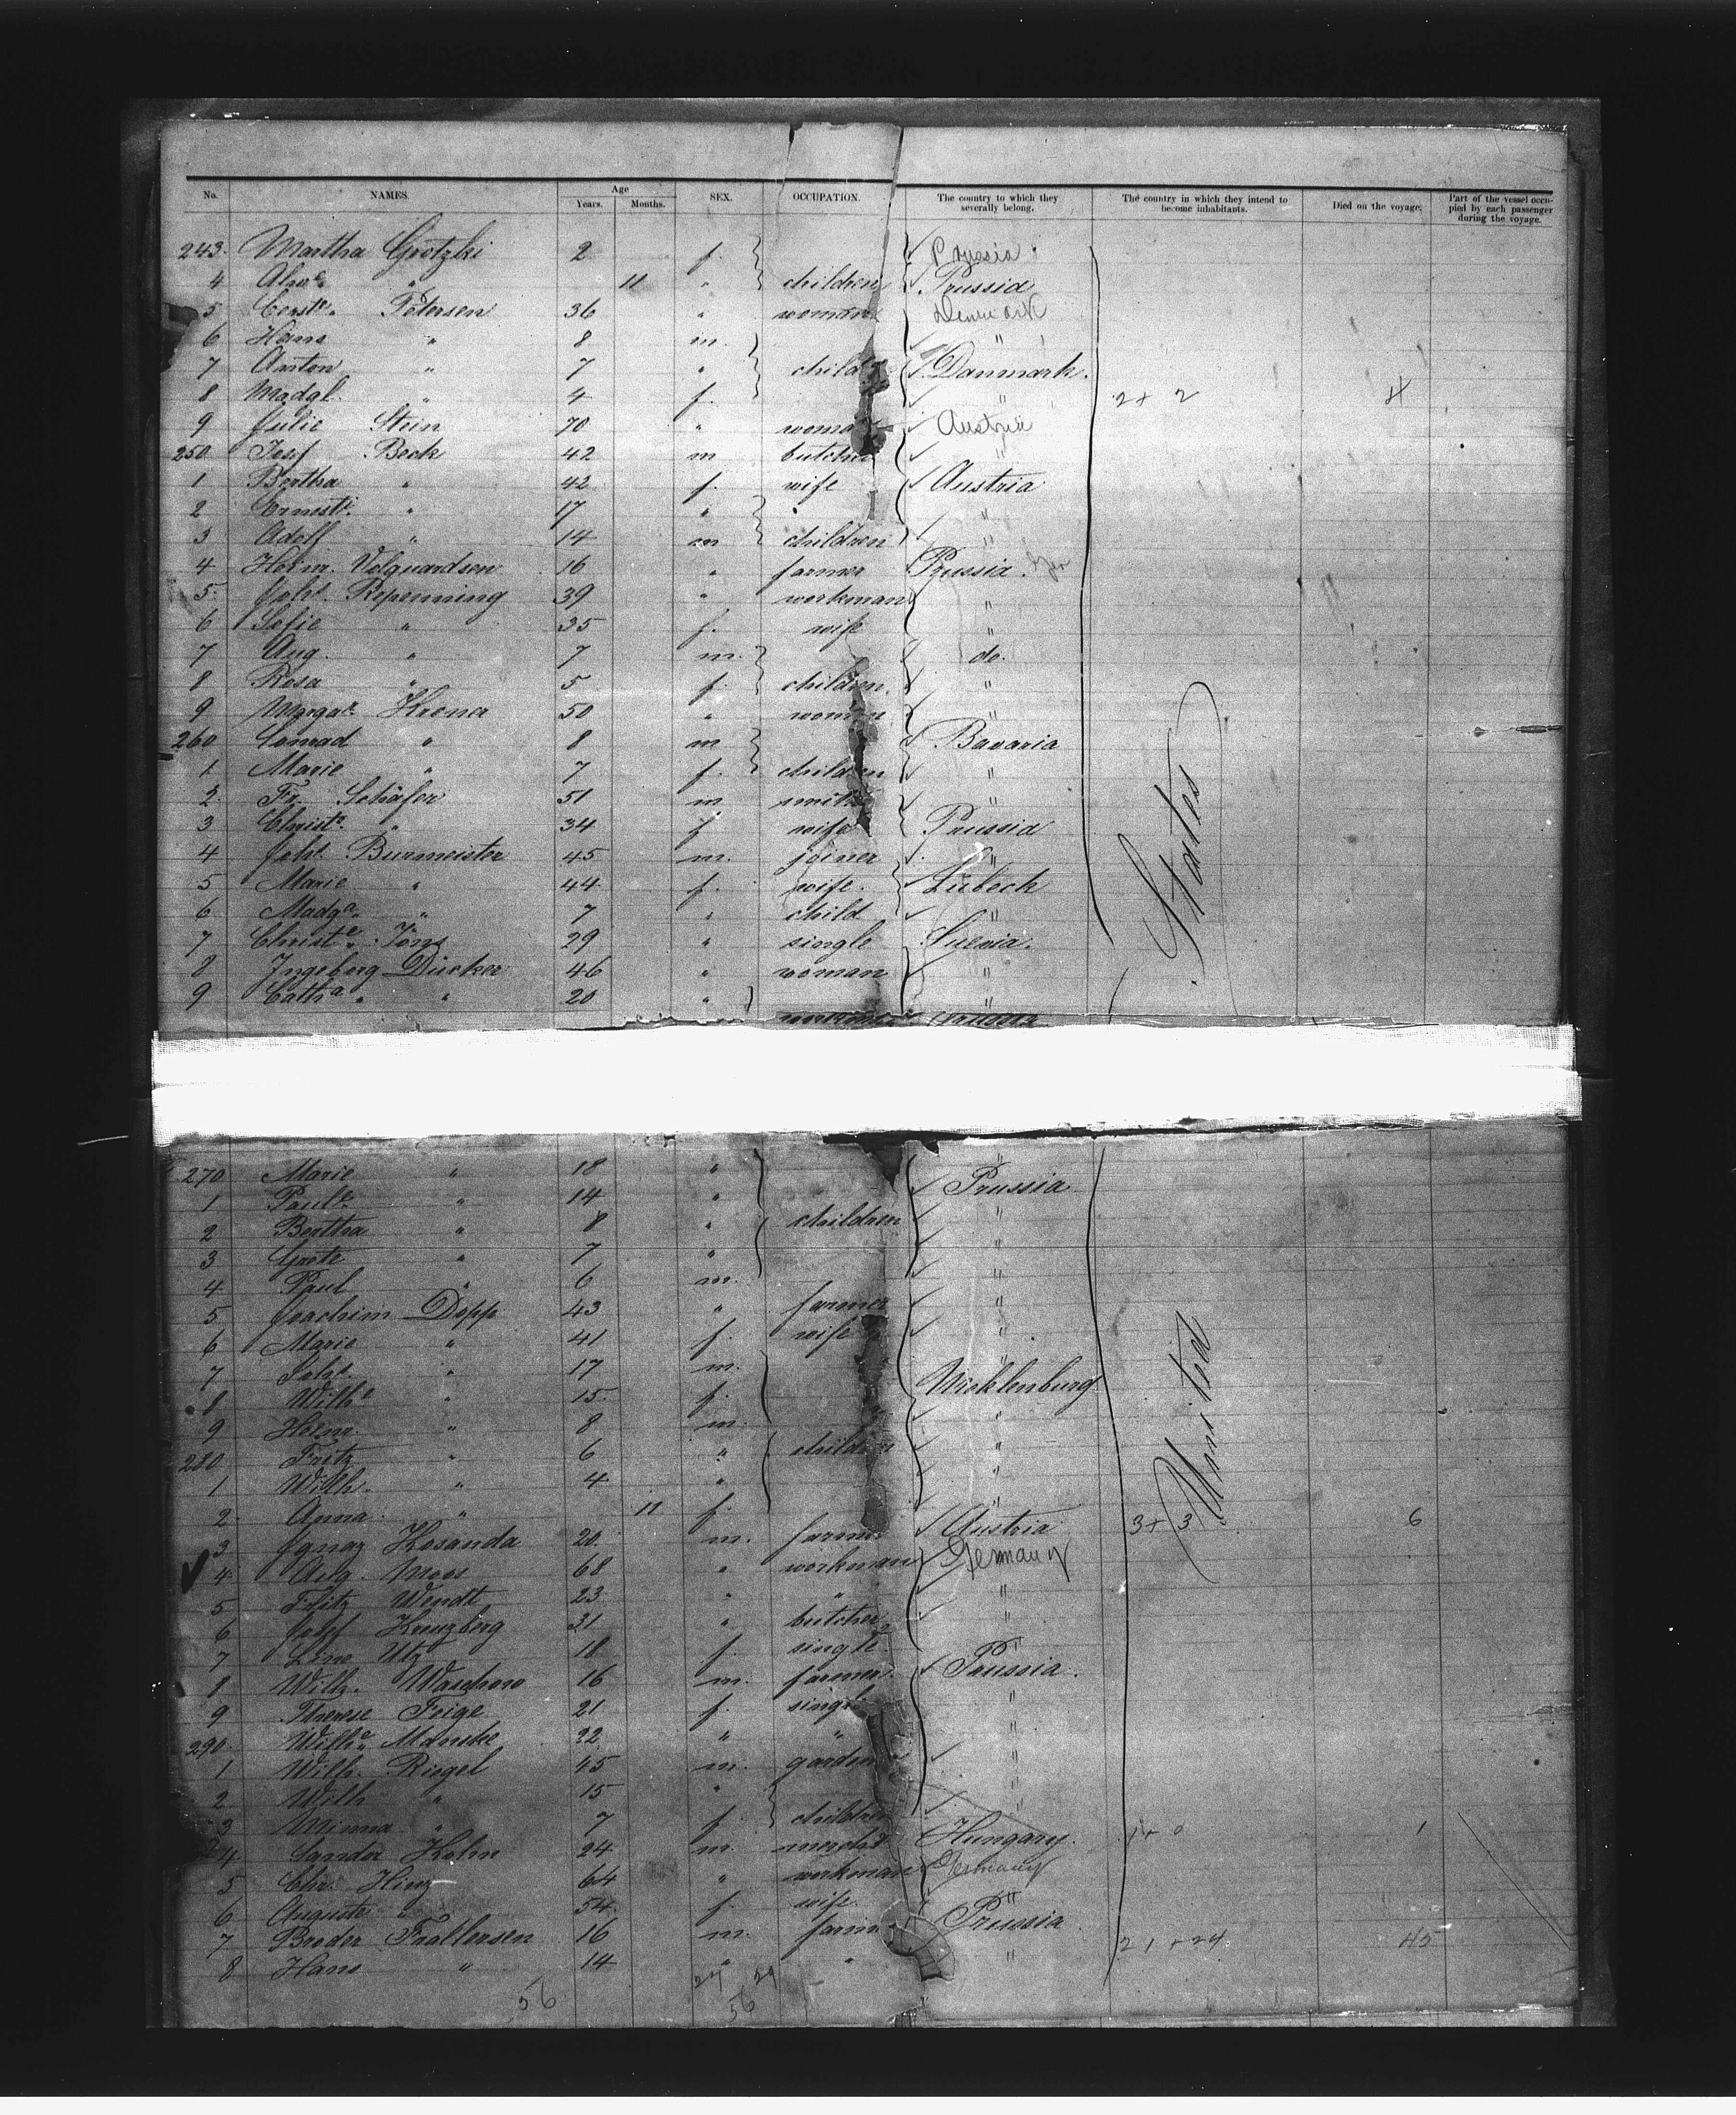 No. NAMES. Age Years. Months. SEX. OCCUPATION. The country to which they severally belong. The country in which they intend to become inhabitants. Died on the voyage. Part of the vessel occupied by each passenger during the voyage.
243. Martha Grotzki 2 f. Prussia
4 " 11 " children Prussia
5 Petersen 36 " woman Denmark
6 Hans " 8 m. "
7 Anton " 7 " child Danmark.
8 Madgl. " 4 f. " 2 + 2 4
9 Julie Stein 70 " woman Austria
250 Josf Beck 42 m butcher "
1 Bertha " 42 f. wife Austria
2 Ernste. " 17 " "
3 Adolf " 14 m children "
4 Heinr. Volquardsen 16 " farmer Prussia.
5. Joh. Repenning 39 " workman "
6 Sofie " 35 f. wife "
7 Aug. " 7 m. do.
8 Rosa " 5 f. children. "
9 Margar. 50 " woman "
260 Conrad " 8 m Bavaria
1. Marie " 7 f. children "
2. Fr. Schäfer 51 m smith "
3 Christe. " 34 f wife Prussia
4 Joh. Burmeister 45 m. joiner "
5 Marie " 44 f. wife. Lübeck
6 Madga. " 7 " child "
7 Christe. Töns 29 " single Suevia.
8 Ingeborg Ducker 46 " woman "
9 Catha. " 20 " "
States
270 Marie " 18 " "
1 Paule. " 14 " Prussia
2 Bertha " 8 " children "
3 Grete " 7 " "
4 Paul " 6 m. "
5 Joachim Dopp 43 " farmer "
6 Marie " 41 f. wife "
7 Joh. " 17 m. "
8 Wilhe " 15 f. Mecklenburg
9 Heinr. " 8 m. "
280 Fritz " 6 " children "
1 Wilh. " 4 " "
2. Anna. " 11 f. "
3 Ignaz Kosanda 20. m. farmer Austria 3 + 3 6
4. Aug. Moos 68 " workman Germany
5 Fritz Wendt 23 " " "
6 Josef Kreuzberg 31 " butcher "
7 Line Utz 18 f. single "
8 Wilh. 16 m. farmer Prussia.
9 Therese Feige 21 f. single "
290. Wilhe. Manske 22 " " "
1 Wilh. Riegel 45 m. "
2 Wilh " 15 " "
3 Minna " 7 f. children
4 Sander Kohn 24 m. Hungary. 1 + 0 1
5 Chr. Hinz 64 " workman Germany
6 Auguste " 54. f. wife. "
7 Broder 16 m. farm Prussia 21 + 24 45
8 Hans " 14 " " "
United
56 27 29
56